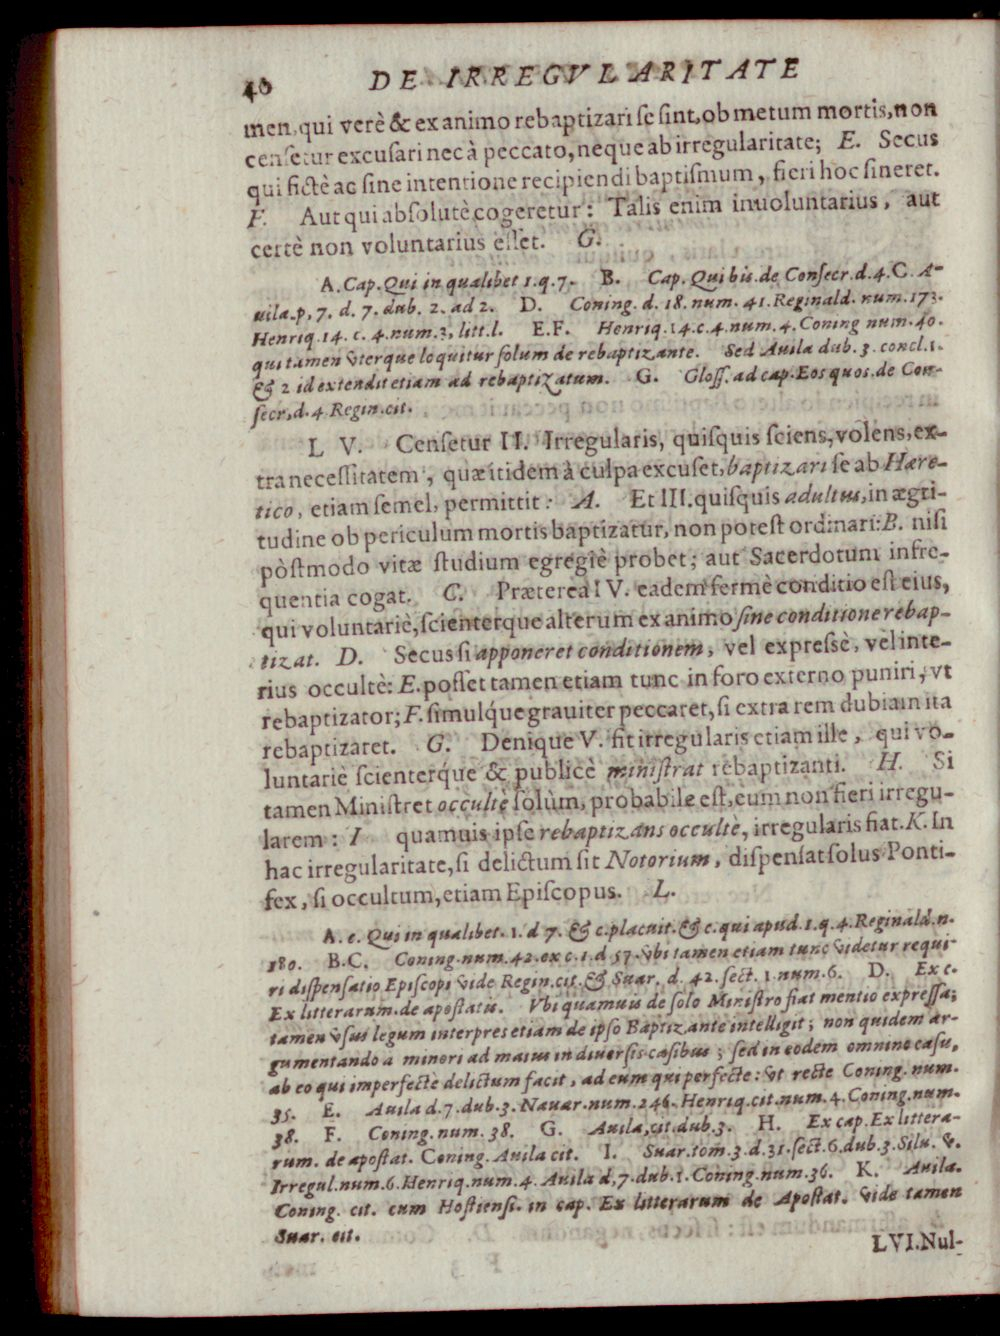 40 DE IRREGVLARITATE
men, qui verè & ex animo rebaptizari se sint, ob metum mortis, non
censetur excusari nec à peccato, neque ab irregularitate; E. Secus
qui fictè ac sine intentione recipiendi baptismum, fieri hoc sineret.
F. Aut qui absolutè cogeretur: Talis enim inuoluntarius, aut
certè non voluntarius esset. G.
A. Cap. Qui in qualibet 1. q. 7. B. Cap. Qui bis. de Consecr. d. 4. C. A-
uila. p, 7. d. 7. dub. 2. ad 2. D. Coning. d. 18. num. 41. Reginald. num. 173.
Henriq. 14. c. 4. num. 3, litt. l. E.F. Henriq. 14. c. 4. num. 4. Coning num. 40.
qui tamen vterque loquitur solum de rebaptizante. Sed Auila dub. 3. concl. 1.
& 2 id extendit etiam ad rebaptizatum. G. Gloss. ad cap. Eos quos. de Con-
secr, d. 4 Regin. cit.
L V. Censetur II. Irregularis, quisquis sciens, volens, ex-
tra necessitatem, quæ itidem à culpa excuset, baptizari se ab Hære-
tico, etiam semel, permittit: A. Et III. quisquis adultus, in ægri-
tudine ob periculum mortis baptizatur, non potest ordinari: B. nisi
pòstmodo vitæ studium egregiè probet; aut Sacerdotum infre-
quentia cogat. C. Præterea IV. eadem fermè conditio est eius,
qui voluntariè, scienterque alterum ex animo sine conditione rebap-
tizat. D. Secus si apponeret conditionem, vel expressè, vel inte-
rius occultè: E. posset tamen etiam tunc in foro externo puniri, vt
rebaptizator; F. simulq́ue grauiter peccaret, si extra rem dubiam ita
rebaptizaret. G. Denique V. fit irregularis etiam ille, qui vo-
luntariè scienterq́ue & publicè ministrat rebaptizanti. H. Si
tamen Ministret occultè solùm, probabile est, eum non fieri irregu-
larem: I quamuis ipse rebaptizans occultè, irregularis fiat. K. In
hac irregularitate, si delictum sit Notorium, dispensat solus Ponti-
fex, si occultum, etiam Episcopus. L.
A. c. Qui in qualibet. 1. d 7. & c. placuit. & c. qui apud. 1. q. 4. Reginald. n.
180. B.C. Coning. num. 42. ex c. 1. d 57. vbi tamen etiam tunc videtur requi-
ri dispensatio Episcopi vide Regin. cit. & Suar. d. 42. sect. 1. num. 6. D. Ex c.
Ex litterarum. de apostatis. Vbi quamuis de solo Ministro fiat mentio expressa;
tamen vsus legum interpres etiam de ipso Baptizante intelligit; non quidem ar-
gumentando a minori ad maius in diuersis casibus; sed in eodem omnino casu,
ab eo qui imperfectè delictum facit, ad eum qui perfecte: vt recte Coning. num.
35. E. Auila d. 7. dub. 3. Nauar. num. 246. Henriq. cit. num. 4. Coning. num.
38. F. Coning. num. 38. G. Auila, cit. dub. 3. H. Ex cap. Ex littera-
rum. de apostat. Coning. Auila cit. I. Suar. tom. 3. d. 31. sect. 6. dub. 3. Silu. v.
Irregul. num. 6. Henriq. num. 4. Auila d, 7. dub. 1. Coning. num. 36. K. Auila.
Coning. cit. cum Hostiensi. in cap. Ex litterarum de Apostat. vide tamen
Suar. cit.
LVI. Nul-